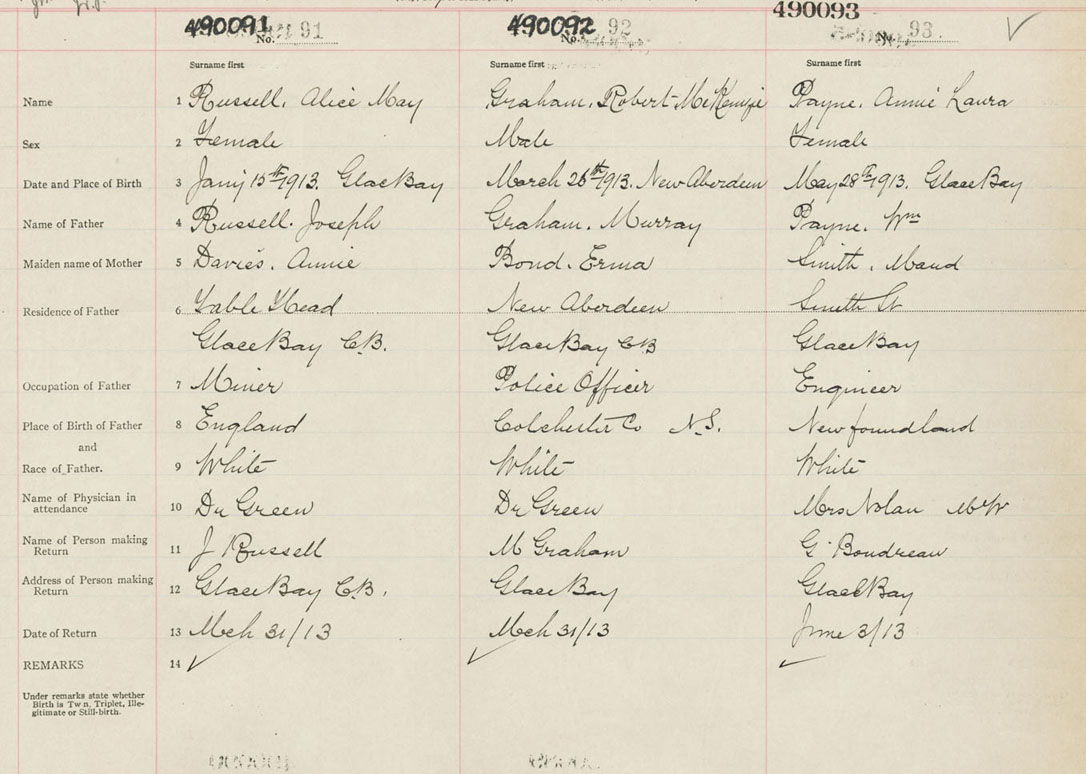 490091 490092 490093
No. 91 No. 92 No. 93
Surname first Surname first Surname first
Name 1 Russell. Alice May Graham. Robert McKenzie Payne. Annie Laura
Sex 2 Female Male Female
Date and Place of Birth 3 Jany 15th 1913. Glace Bay March 26th 1913. New Aberdeen May 28th 1913. Glace Bay
Name of Father 4 Russell. Joseph Graham. Murray Payne. Wm
Maiden name of Mother 5 Davies. Annie Bond. Erma Smith. Maud
Residence of Father 6 Table Head New Aberdeen Smith St
Glace Bay C.B. Glace Bay CB Glace Bay
Occupation of Father 7 Miner Police Officer Engineer
Place of Birth of Father 8 England Colchester Co N.S. Newfoundland
and
Race of Father. 9 White White White
Name of Physician in
attendance 10 Dr Green Dr Green Mrs Nolan
Name of Person making
Return 11 J Russell M Graham G. Boudreau
Address of Person making
Return 12 Glace Bay C.B. Glace Bay Glace Bay
Date of Return 13 Mch 31/13 Mch 31/13 June 3/13
REMARKS 14
Under remarks state whether
Birth is Twin, Triplet, Ille-
gitimate or Still-birth.